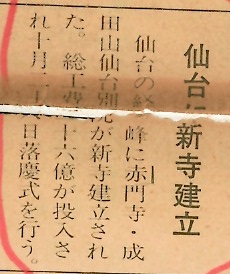 仙台に新寺建立
仙台の　峰に赤門寺・成
田山仙台別院が新寺建立され
た。総工費　十六億が投入さ
れ十月二十　日落慶式を行う。